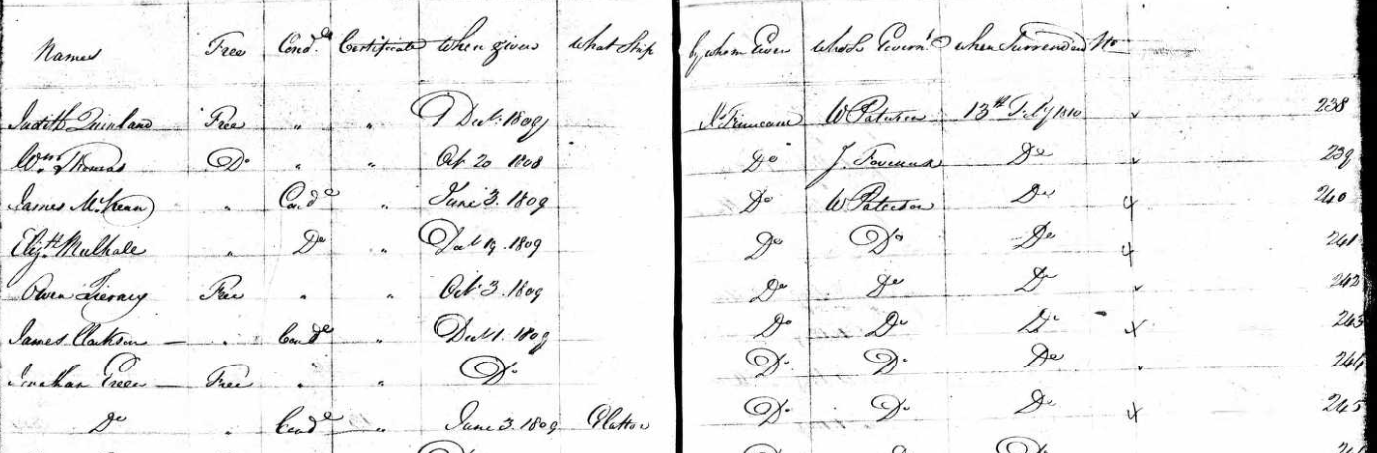 Names Free Cond.l Certificate When given What Ship by whom Given Whose Governt when Surrendered No
Judith Quinland Free " " Decr. 1809 W Paterson 13th Feby 1810 238
Wm. Thomas Do " " Oct 20 1808 Do J. Foveaux Do 239
James McKean " Conde " June 3. 1809 Do W Paterson Do 240
Elizth Mulhale " Do " 19. 1809 Do Do Do 241
Owen Tierney Free " " Octr 3. 1809 Do Do Do 242
James Clarkson " Conde " Decr 1. 1809 Do Do Do 243
Jonathan Green Free " " Do Do Do Do 244
Do " Conde " June 3. 1809 Glatton Do Do Do 245